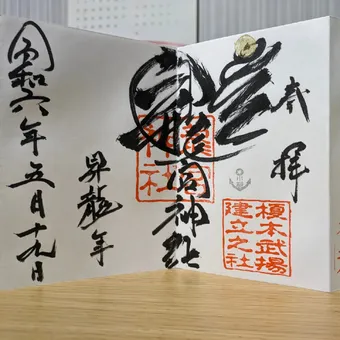 奉拝
榎本武揚
建立之社
龍宮神社
龍宮
神社
昇龍年
令和六年五月十九日